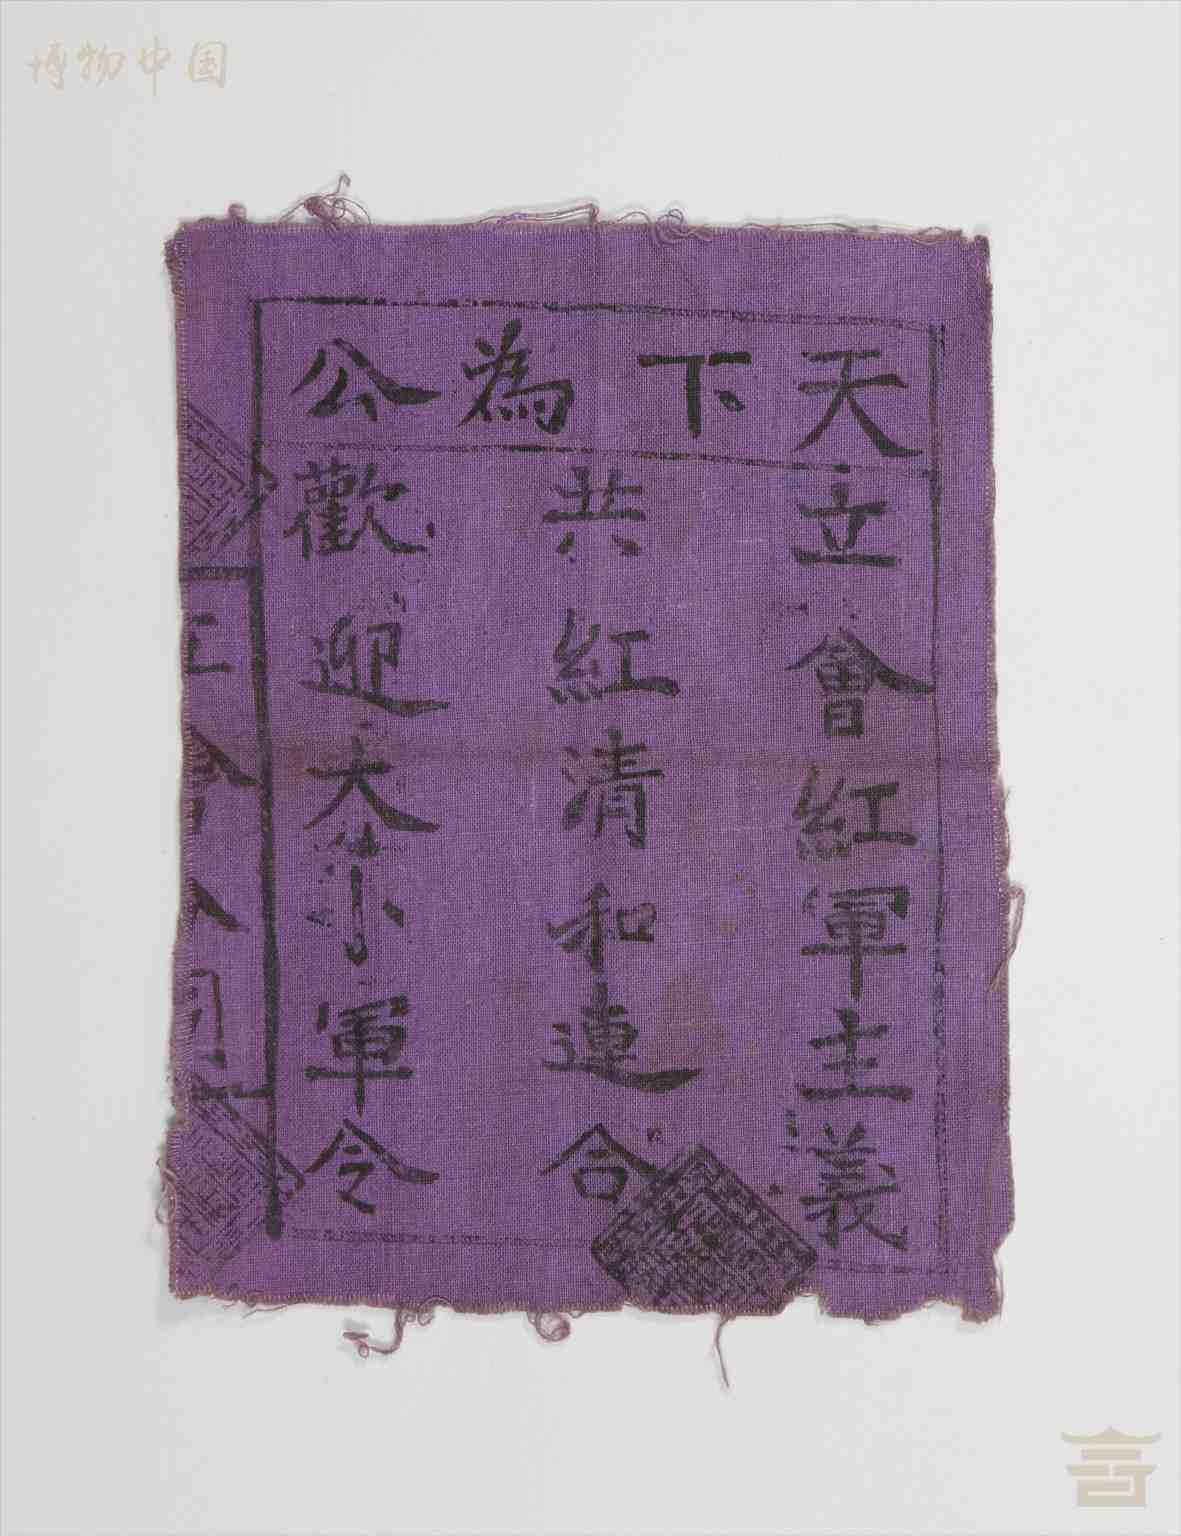 博物中国
天下為公
立會紅軍主義
共紅清和連合
歡迎大小軍令